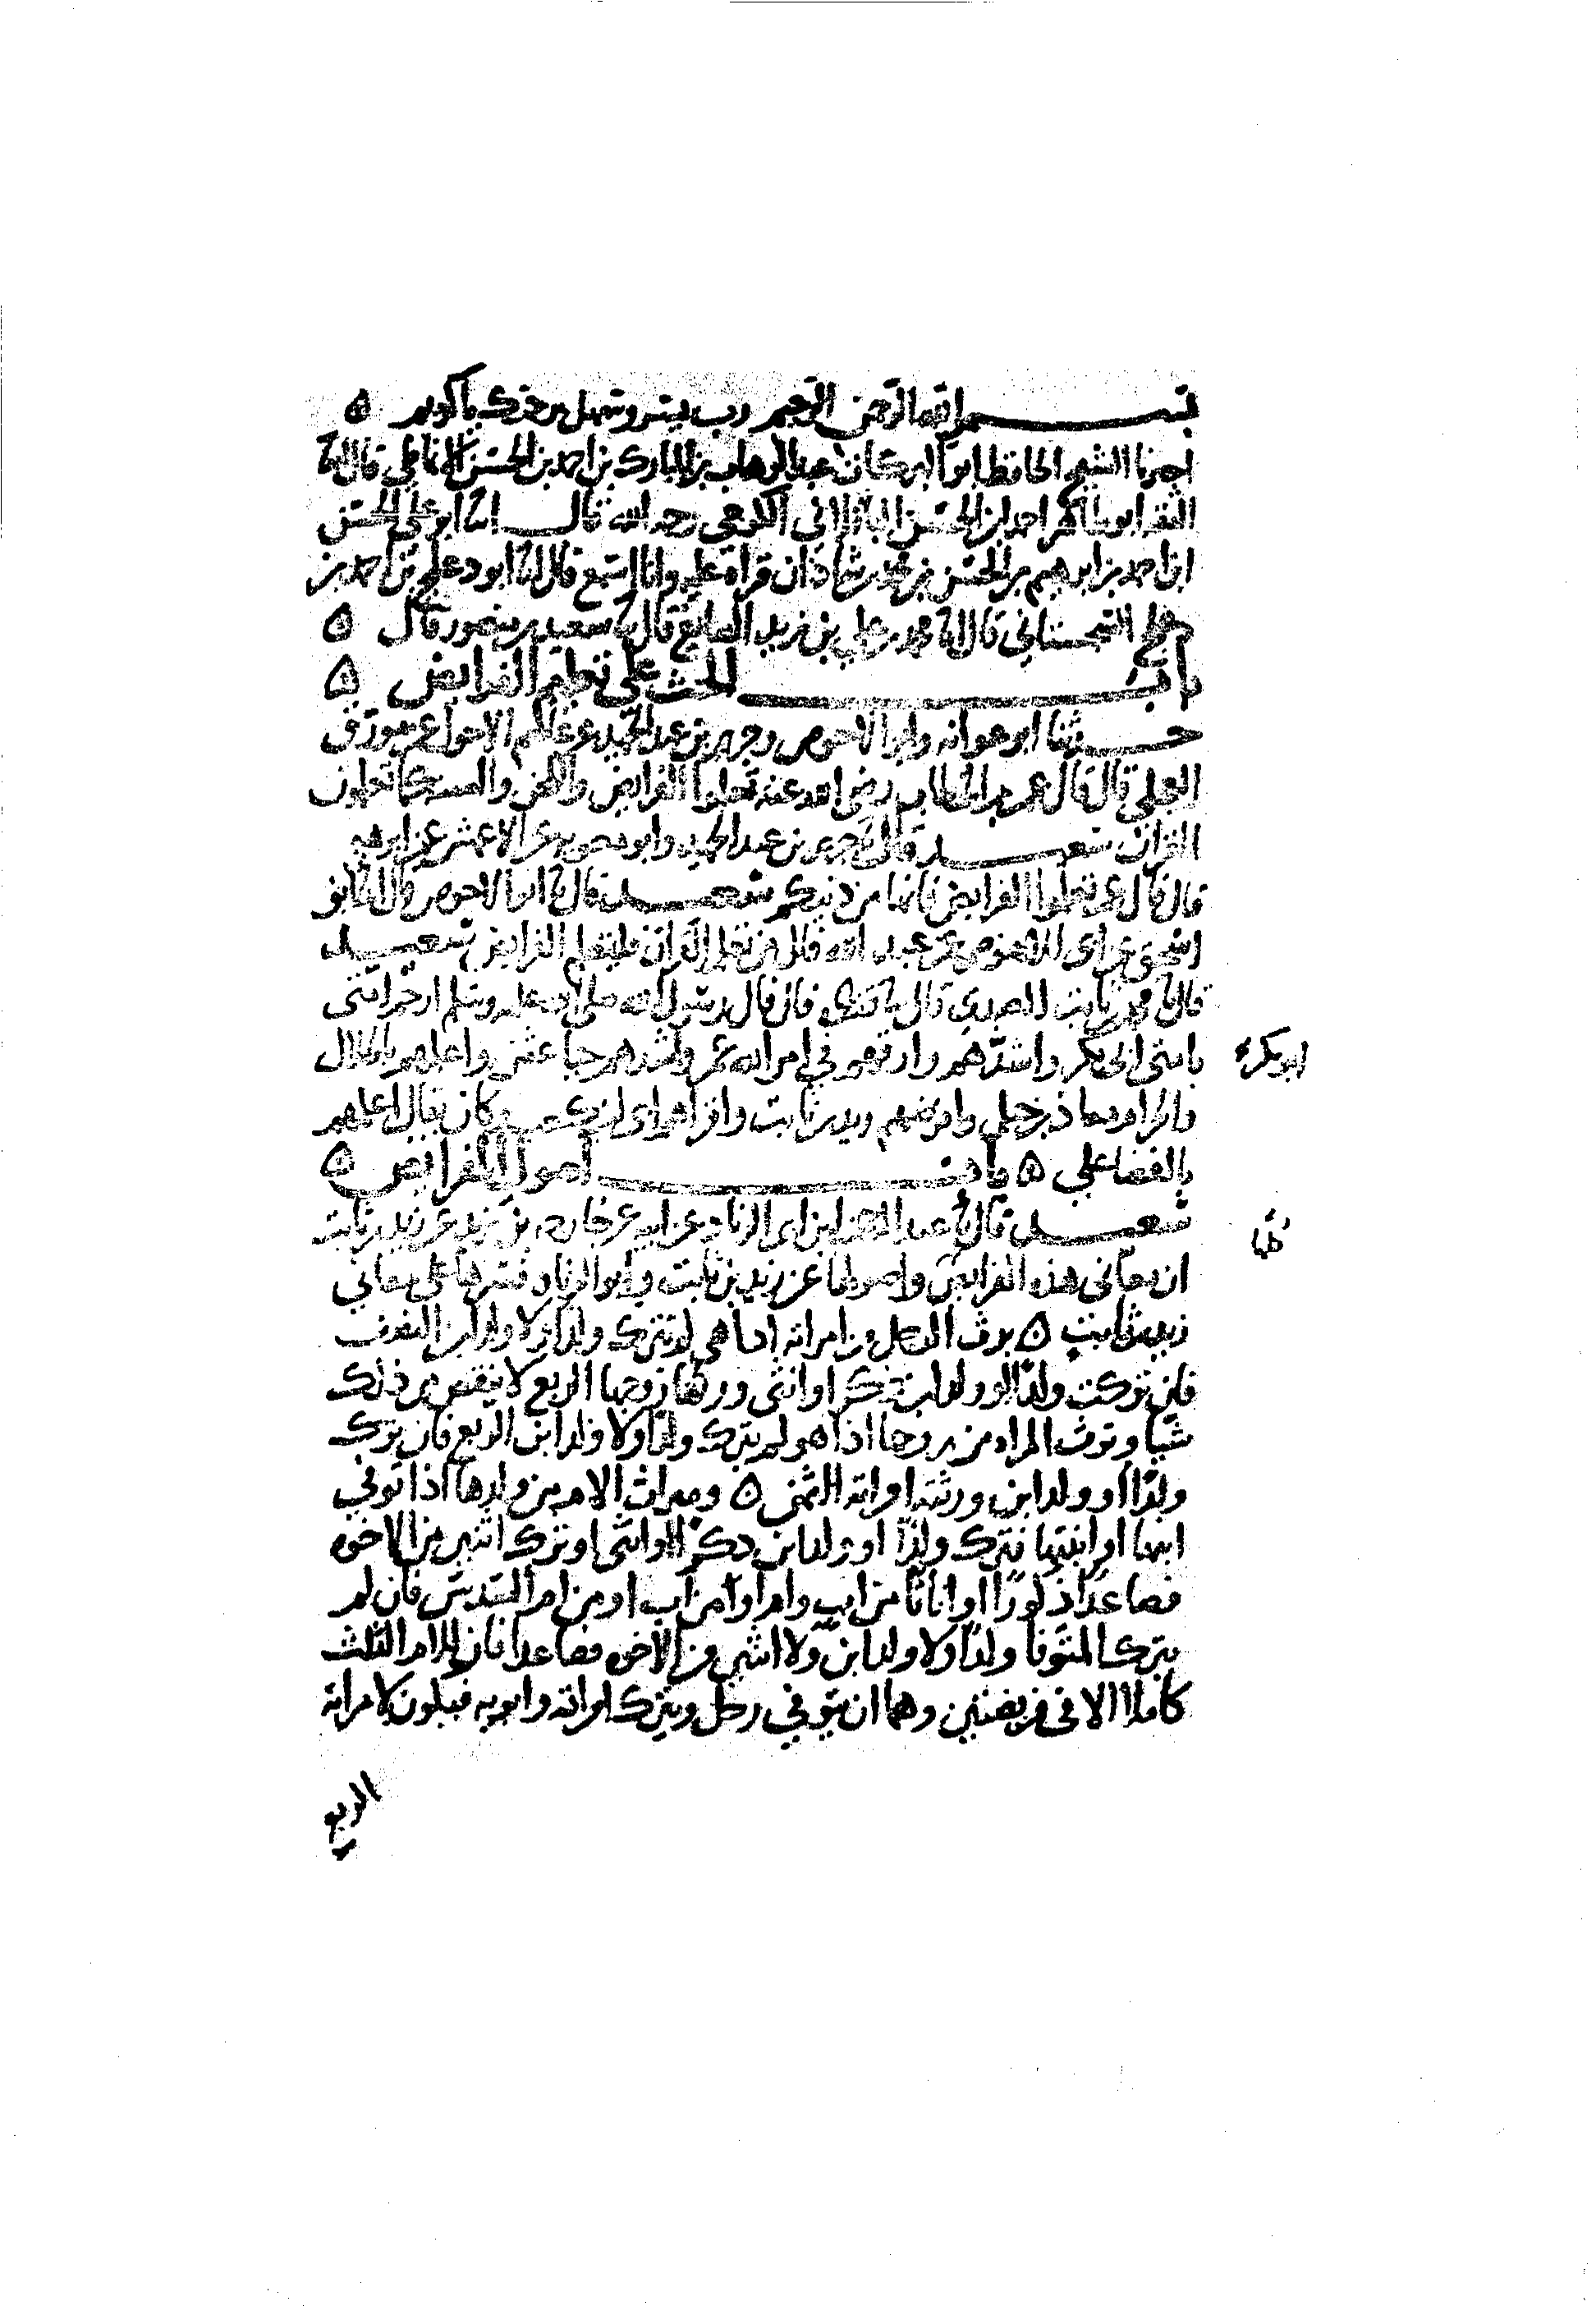 بسم الله الرحمن الرحيم رب يسر وسهل برحمتك يا كريم ٥
اخبرنا الشيخ الحافظ ابو البركات عبد الوهاب بن المبارك بن احمد بن الحسن الانماطي قال انا
الثقة ابو طاهر احمد بن الحسن الباقلاني الكرجي رحمه الله قال انا ابو علي الحسن
ابن احمد بن ابرهيم بن الحسن بن محمد بن شاذان قراة عليه وانا اسمع قال انا ابو دعلج بن احمد بن
دعلج السجستاني قال نا محمد بن علي بن زيد الصائغ قال نا سعيد بن منصور قال ٥
باب الحث على تعليم الفرايض ٥
حدثنا ابو عوانه وابو الاحوص وجرير بن عبد الحميد عن عاصم الاحول عن مورق
العجلي قال قال عمر بن الخطاب رضي الله عنه تعلموا الفرايض واللحن والسنه كما تعلمون
القران سعيد قال نا جرير بن عبد الحميد وابو معويه عن الاعمش عن ابرهيم
قال قال عمر تعلموا الفرايض فانها من دينكم سعيد قال نا ابو الاحوص قال نا ابو
اسحق عن ابي الاحوص عن عبد الله قال من تعلم القران فليتعلم الفرايض سعيد
قال نا محمد بن ثابت العبدي قال نا قتاده قال قال رسول الله صلى الله عليه وسلم ارحم امتي
بامتي ابو بكر واشدهم وارقهم في امر الله عمر واشدهم حيا عثمن واعلمهم بالحلال
والحرام معاذ بن جبل وافرضهم زيد بن ثابت واقراهم ابي بن كعب وكان يقال اعلمهم
بالقضا علي ٥ باب اصول الفرايض ٥
سعيد قال نا عبد الرحمن ابن ابي الزناد عن ابيه عن خارجه بن زيد عن زيد بن ثابت
ان معاني هذه الفرايض واصولها عن زيد بن ثابت وابو الزناد فسرها على معاني
زيد بن ثابت ٥ يرث الرجل من امراته اذا هي لم تترك ولدا ولا ولد ابن النصف
فان تركت ولدا او ولد ابن ذكرا وانثى وورثها زوجها الربع لا ينقص من ذلك
شيا وترث المراه من زوجها اذا هو لم يترك ولدا ولا ولد ابن الربع فان ترك
ولدا او ولد ابن ورثته امراته الثمن ٥ وميراث الام من ولدها اذا توفي
ابنها او ابنتها فترك ولدا او ولد ابن ذكرا او انثى او ترك اثنين من الاخوه
فصاعدا ذكورا او اناثا من اب وام او من اب او من ام السدس فان لم
يترك المتوفا ولدا ولا ولد ابن ولا اثنين من الاخوه فصاعدا فان للام الثلث
كاملا الا في فريضتين وهما ان يتوفي رجل ويترك امراته وابويه فيكون لامراته
الربع
ابو بكر
كلها